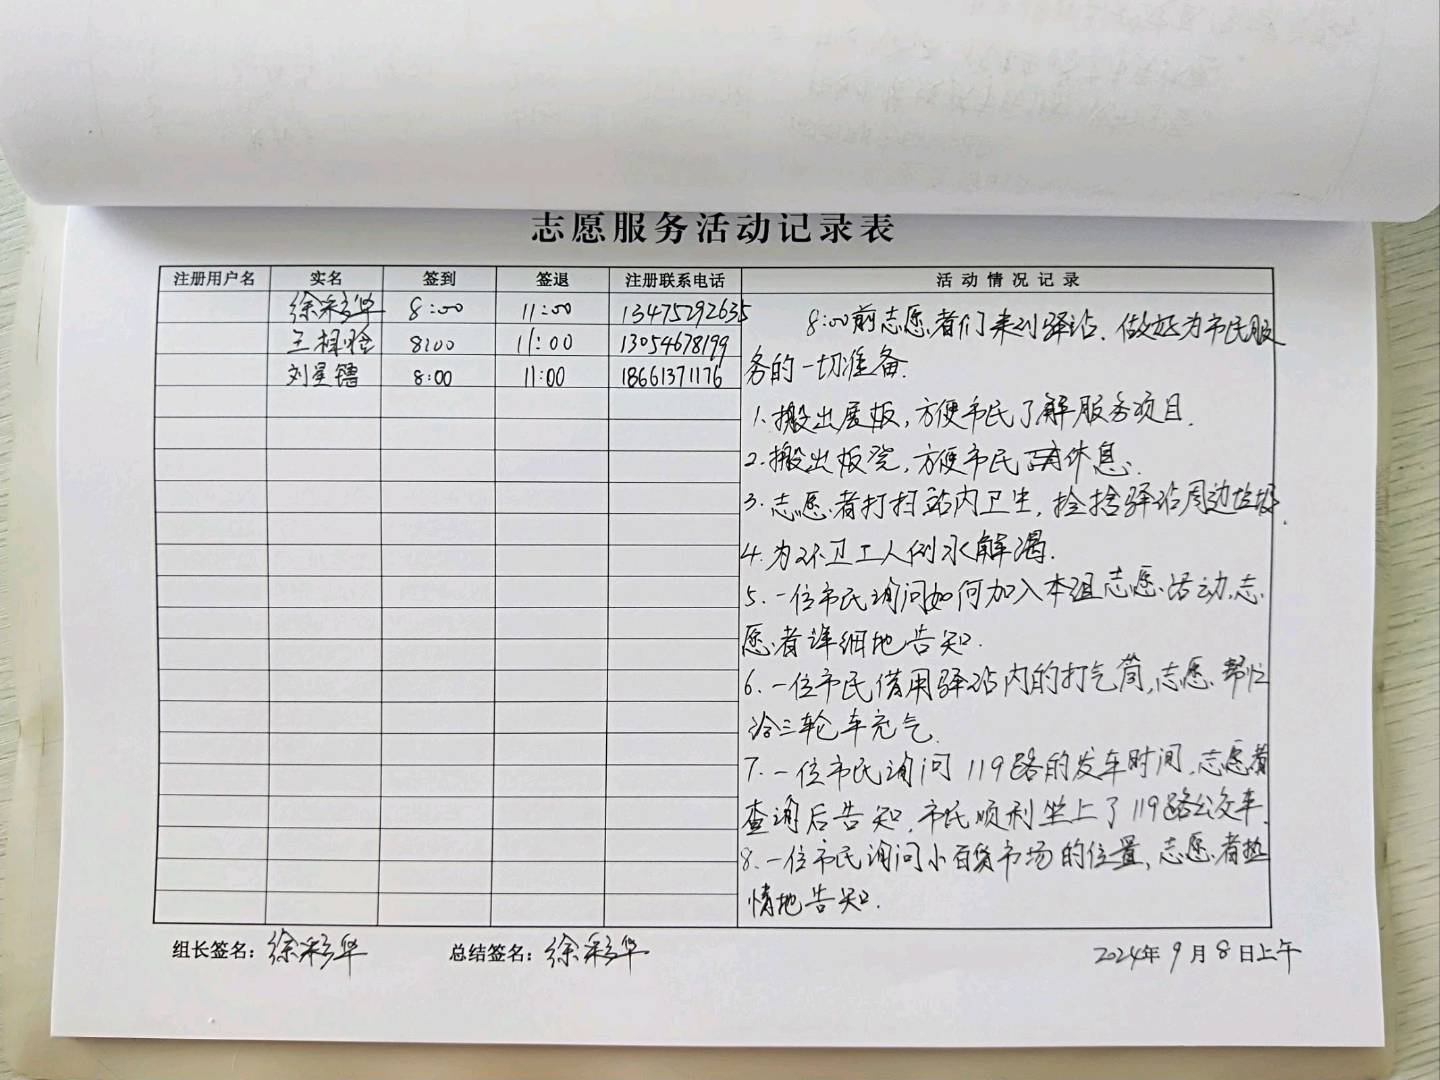 志愿服务活动记录表
注册用户名 实名 签到 签退 注册联系电话 活动情况记录
徐彩华 8:00 11:00 13475292635
王 8:00 11:00 13054678199
刘星 8:00 11:00 18661371176
8:00前志愿者们来到驿站、做好为市民服
务的一切准备.
1.搬出展板,方便市民了解服务项目.
2.搬出板凳,方便市民休息.
3.志愿者打扫站内卫生,捡拾驿站周边垃圾.
4.为环卫工人倒水解渴.
5.一位市民询问如何加入本组志愿活动,志
愿者详细地告知.
6.一位市民借用驿站内的打气筒,志愿帮忙
给三轮车充气.
7.一位市民询问119路的发车时间,志愿者
查询后告知,市民顺利坐上了119路公交车.
8.一位市民询问小百货市场的位置,志愿者热
情地告知.
组长签名:徐彩华 总结签名:徐彩华 2024年9月8日上午